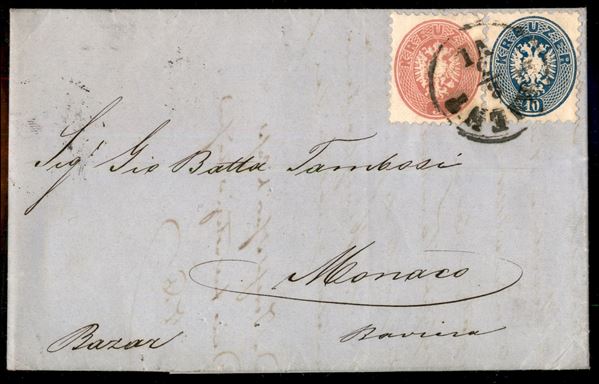 KREUZER
KREUZER
10
Sig.r Gio Batta Tambosi
Monaco
Bazar
Baviera